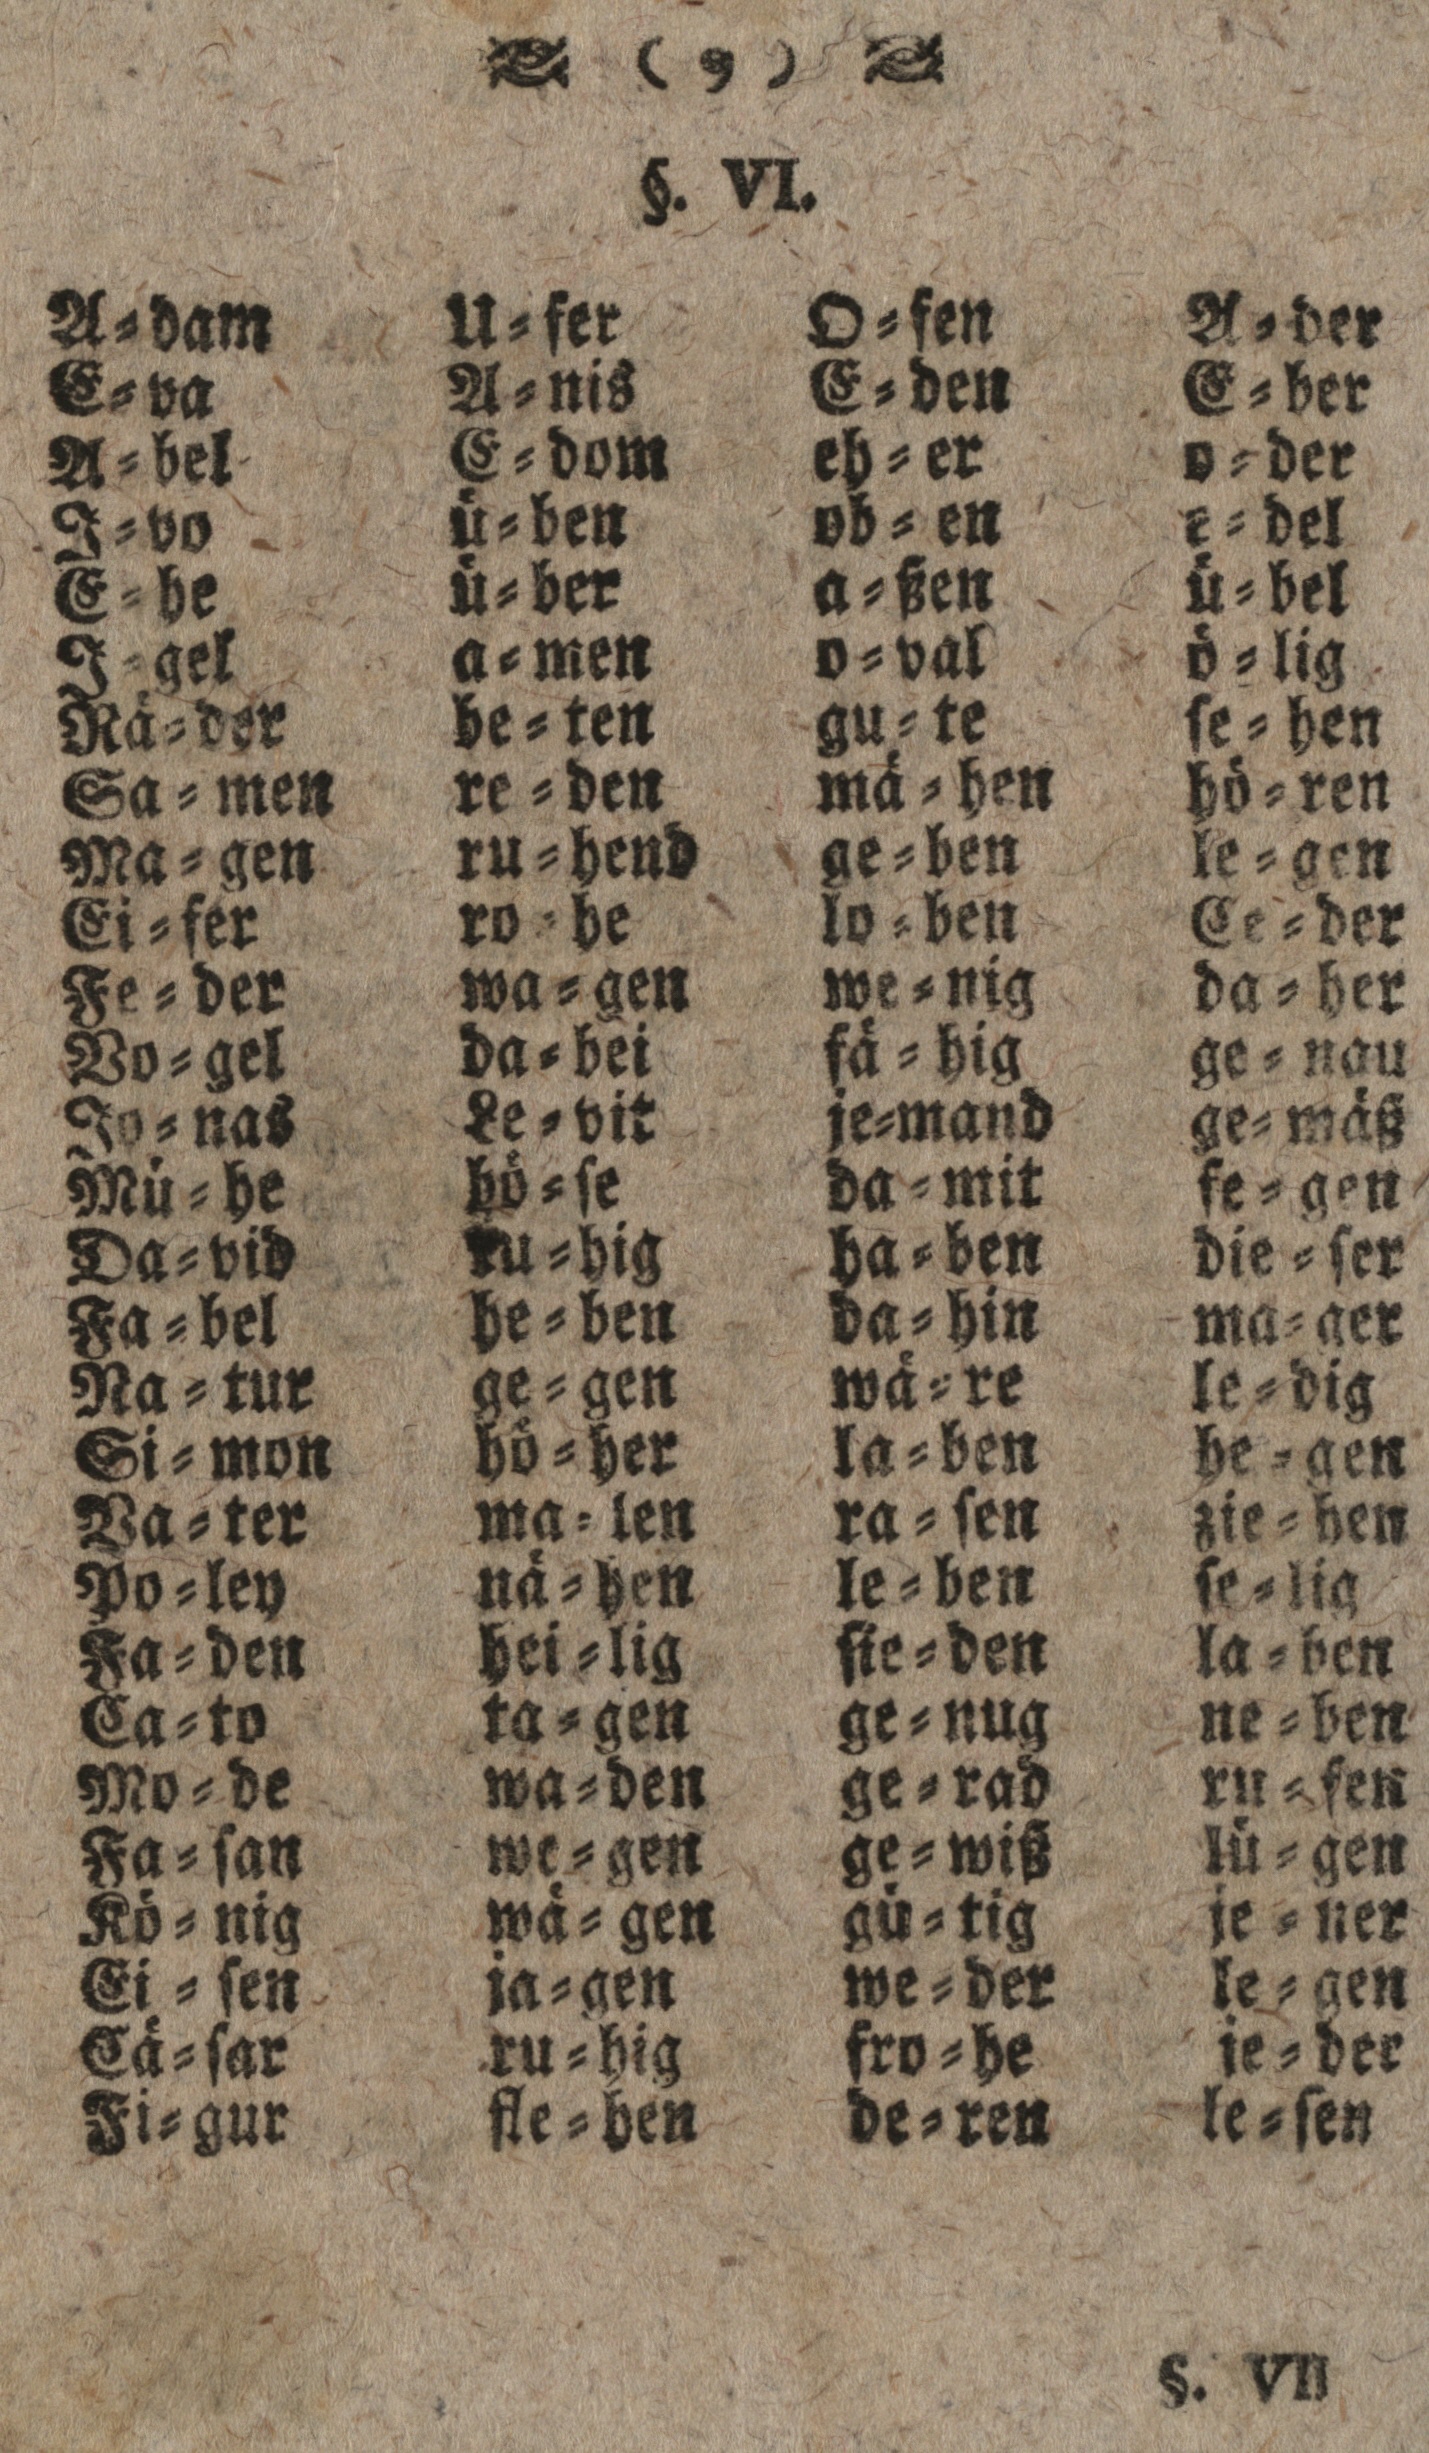 ( 9 )
§. VI.
A⸗dam U⸗fer O⸗fen A⸗der
E⸗va A⸗nis E⸗den E⸗ber
A⸗bel E⸗dom eh⸗er o⸗der
I⸗vo uͤ⸗ben ob⸗en e⸗del
E⸗he uͤ⸗ber a⸗ßen uͤ⸗bel
I⸗gel a⸗men o⸗val oͤ⸗lig
Raͤ⸗der be⸗ten gu⸗te ſe⸗hen
Sa⸗men re⸗den maͤ⸗hen hoͤ⸗ren
Ma⸗gen ru⸗hend ge⸗ben le⸗gen
Ei⸗fer ro⸗he lo⸗ben Ce⸗der
Fe⸗der wa⸗gen we⸗nig da⸗her
Vo⸗gel da⸗bei faͤ⸗hig ge⸗nau
Jo⸗nas Le⸗vit je⸗mand ge⸗maͤß
Muͤ⸗he boͤ⸗ſe da⸗mit fe⸗gen
Da⸗vid ru⸗hig ha⸗ben die⸗ſer
Fa⸗bel he⸗ben da⸗hin ma⸗ger
Na⸗tur ge⸗gen waͤ⸗re le⸗dig
Si⸗mon hoͤ⸗her la⸗ben he⸗gen
Va⸗ter ma⸗len ra⸗ſen zie⸗hen
Po⸗ley naͤ⸗hen le⸗ben ſe⸗lig
Fa⸗den hei⸗lig ſie⸗den la⸗ben
Ca⸗to ta⸗gen ge⸗nug ne⸗ben
Mo⸗de wa⸗den ge⸗rad ru⸗fen
Fa⸗ſan we⸗gen ge⸗wiß luͤ⸗gen
Koͤ⸗nig waͤ⸗gen guͤ⸗tig je⸗ner
Ei⸗ſen ja⸗gen we⸗der le⸗gen
Caͤ⸗ſar ru⸗hig fro⸗he je⸗der
Fi⸗gur fle⸗hen de⸗ren le⸗ſen
§. VII